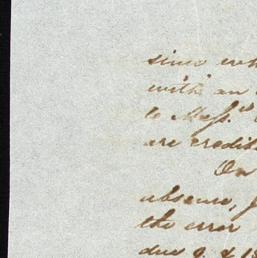 since
with an
to Mess.rs
are credit
On
absence,
the error
due